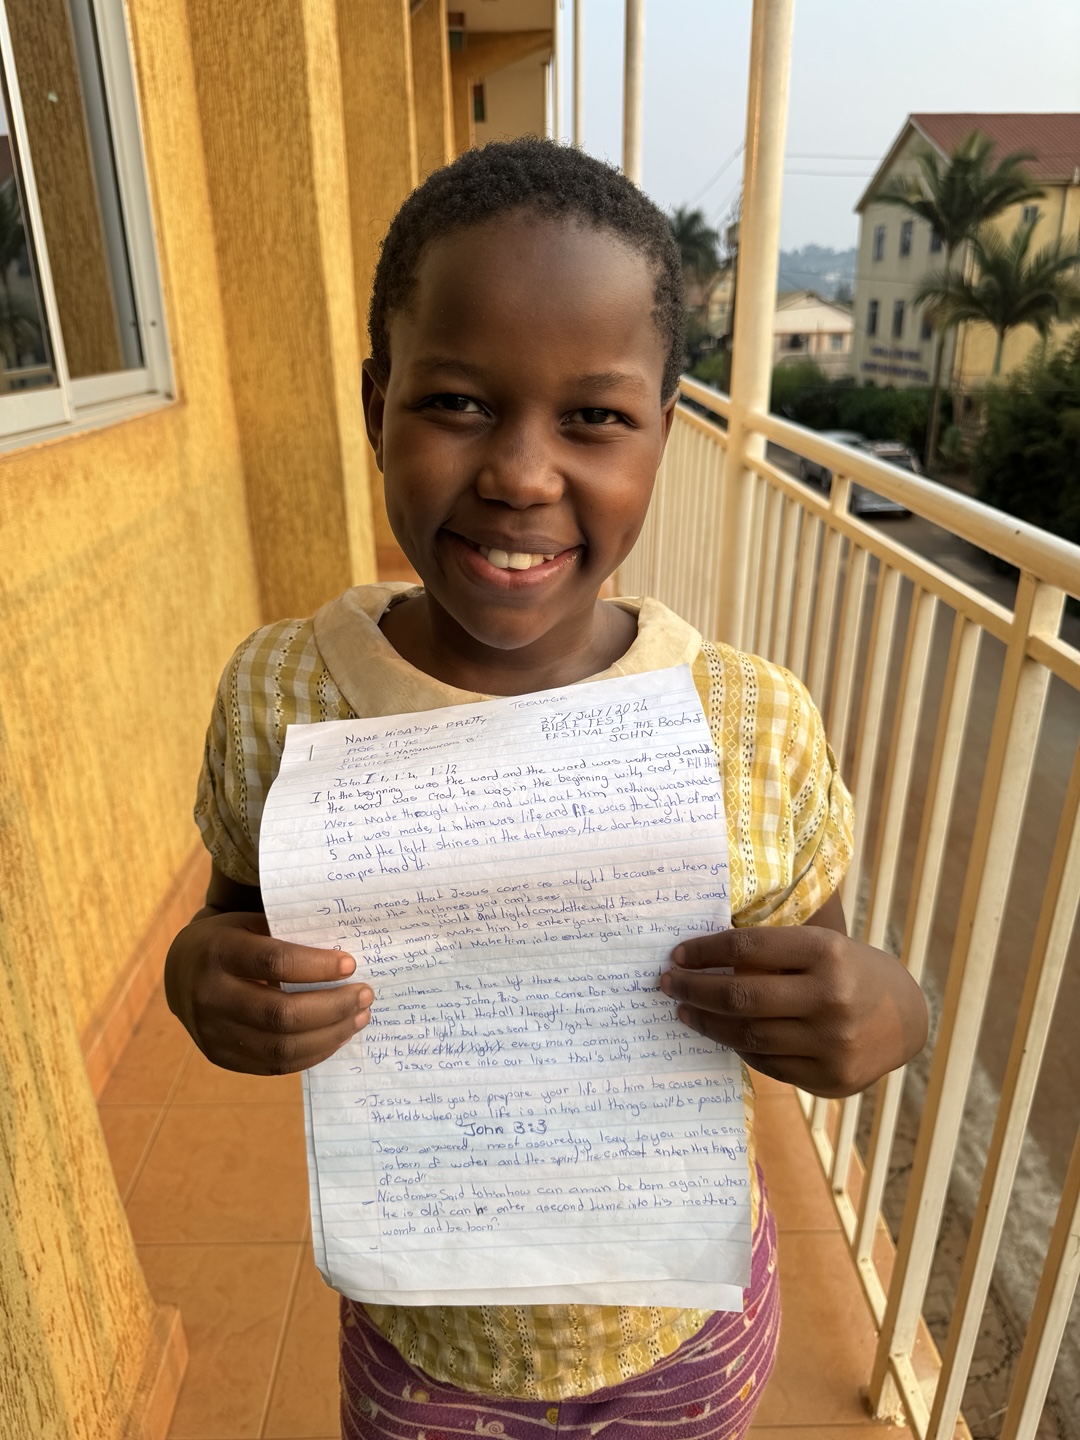 TEENAGER
NAME KISAKYE PRETTY
AGE: 11 Yrs
PLACE: NANSU
SERVICE:
27th / July / 2024
BIBLE TEST
FESTIVAL OF THE Book of
JOHN.
John I 1, 1:4, 1:12
I In the beginning was the word and the word was with God and
the word was God, he was in the beginning with God, 3 All
were made through him, and without him nothing was made
that was made, 4 in him was life and life was the light of men
5 and the light shines in the darkness, the darkness did not
comprehend it.
→ This means that Jesus come as alight because when you
walk in the darkness you can't see.
- Jesus was the wold and light come to the wold for us to be saved
Light means Make him to enter your life.
When you don't Make him into enter you lif thing will
be possible.
withness The true light there was a man send
name was John, This man came for a withnes
of the light that all through him might be
Withness of light but was sent to light which
light to every man coming into the
→ Jesus came into our lives that's why we got new
→ Jesus tells you to prepare your life to him because he is
the when you life is in him all things will be possible
John 3:3
Jesus answered, most assureduy I say to you unless
is born of water and the spirit he cannot enter the
of God"
- Nicodemus Said to him how can a man be born again when
he is old? can he enter a second tume into his mothers
womb and be born?